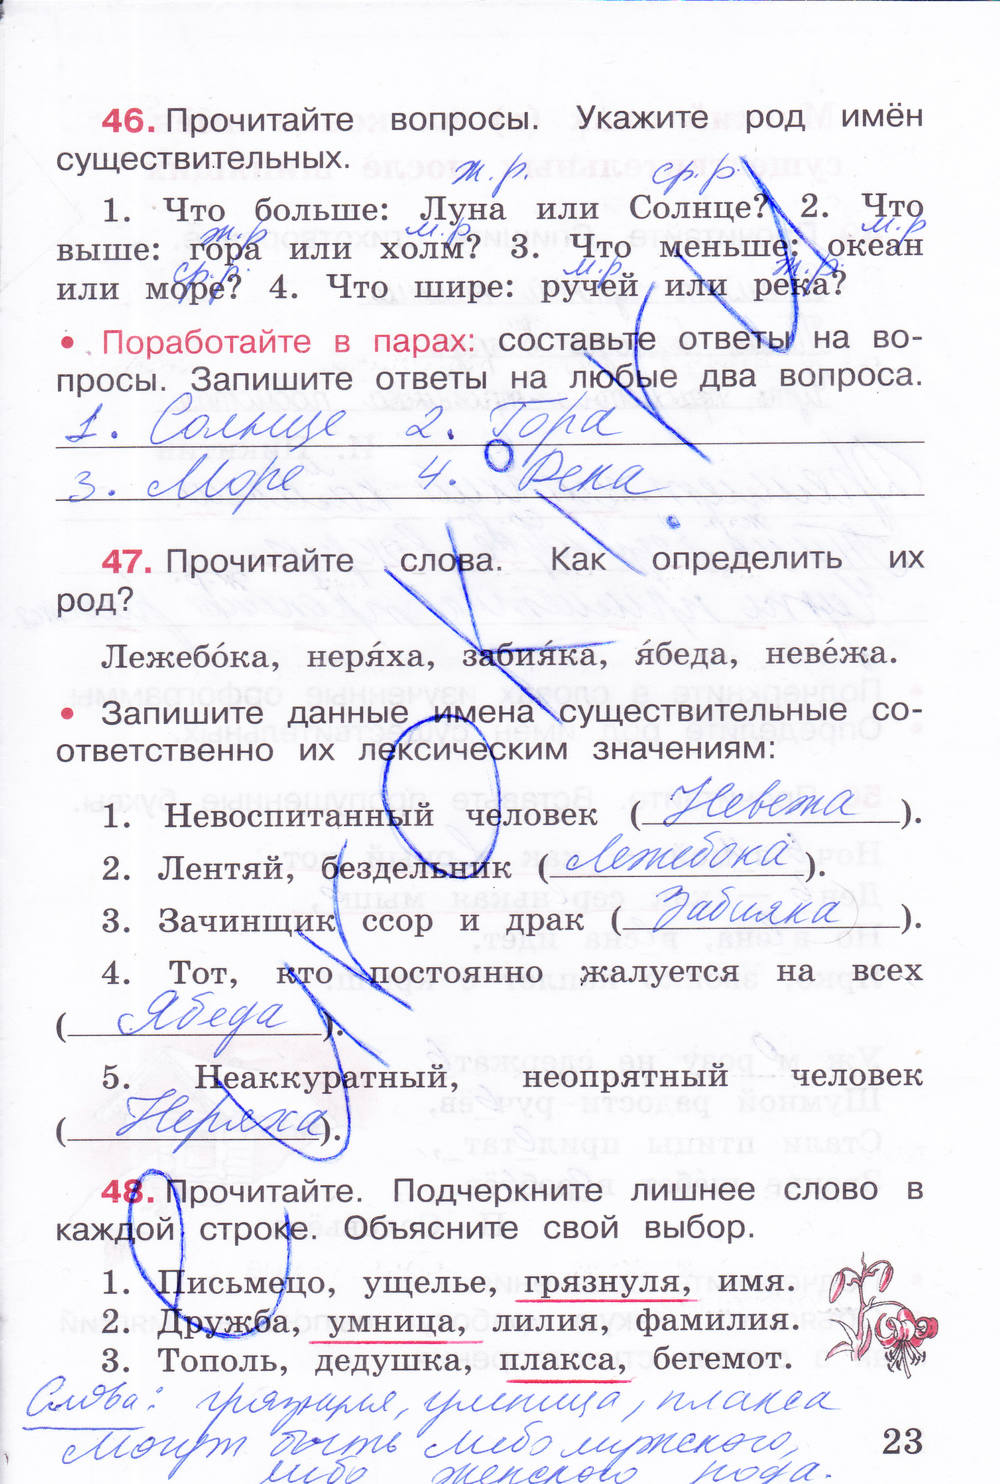 46. Прочитайте вопросы. Укажите род имён
существительных.
ж. р. ср. р.
1. Что больше: Луна или Солнце? 2. Что
ж. р. м. р. м. р.
выше: гора или холм? 3. Что меньше: океан
ср. р. м. р. ж. р.
или море? 4. Что шире: ручей или река?
• Поработайте в парах: составьте ответы на во-
просы. Запишите ответы на любые два вопроса.
1. Солнце 2. Гора
3. Море 4. Река
47. Прочитайте слова. Как определить их
род?
Лежебо́ка, неря́ха, забия́ка, я́беда, неве́жа.
• Запишите данные имена существительные со-
ответственно их лексическим значениям:
1. Невоспитанный человек (Невежа).
2. Лентяй, бездельник (Лежебока).
3. Зачинщик ссор и драк (Забияка).
4. Тот, кто постоянно жалуется на всех
(Ябеда).
5. Неаккуратный, неопрятный человек
(Неряха).
48. Прочитайте. Подчеркните лишнее слово в
каждой строке. Объясните свой выбор.
1. Письмецо, ущелье, грязнуля, имя.
2. Дружба, умница, лилия, фамилия.
3. Тополь, дедушка, плакса, бегемот.
Слова: грязнуля, умница, плакса
могут быть либо мужского,
либо женского рода.
23